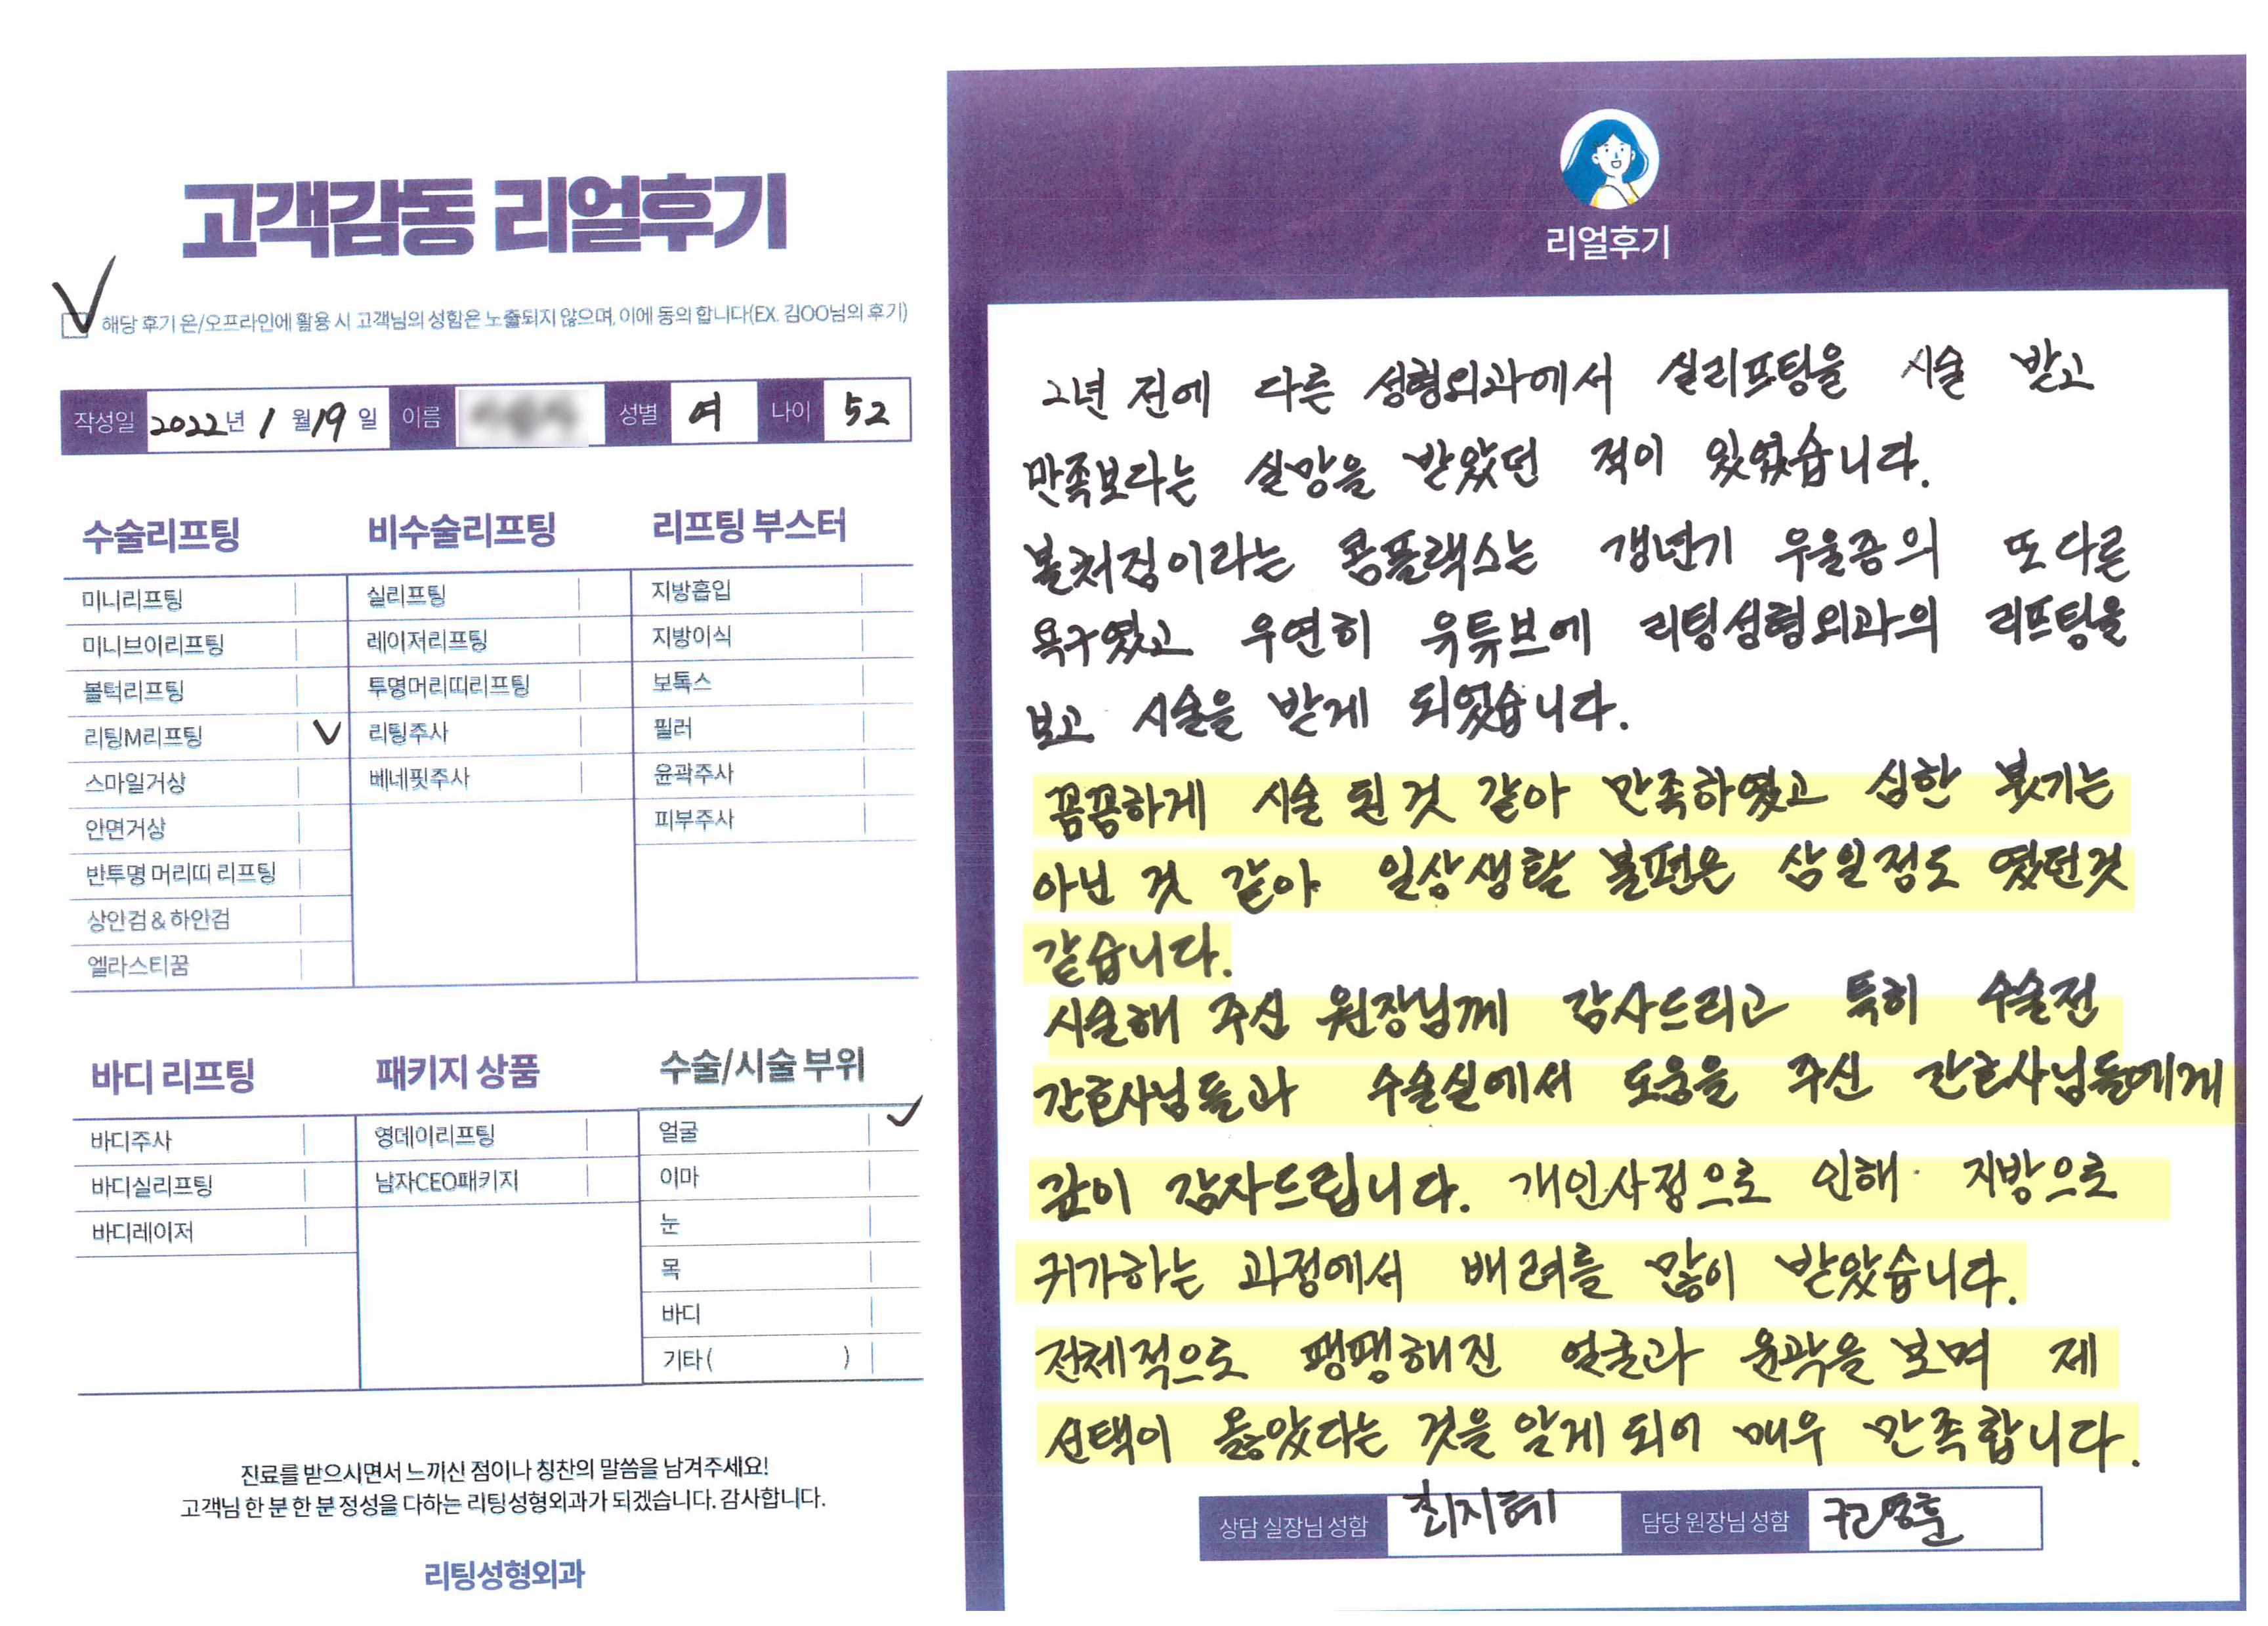 고객감동 리얼후기
해당 후기 온/오프라인에 활용 시 고객님의 성함은 노출되지 않으며, 이에 동의 합니다(EX. 김OO님의 후기)
작성일 2022년 1월 19일 이름 성별 여 나이 52
수술리프팅
미니리프팅
미니브이리프팅
볼턱리프팅
리팅M리프팅
스마일거상
안면거상
반투명 머리띠 리프팅
상안검 & 하안검
엘라스티꿈
비수술리프팅
실리프팅
레이저리프팅
투명머리띠리프팅
리팅주사
베네핏주사
리프팅 부스터
지방흡입
지방이식
보톡스
필러
윤곽주사
피부주사
바디 리프팅
바디주사
바디실리프팅
바디레이저
패키지 상품
영데이리프팅
남자CEO패키지
수술/시술 부위
얼굴
이마
눈
목
바디
기타 ( )
진료를 받으시면서 느끼신 점이나 칭찬의 말씀을 남겨주세요!
고객님 한 분 한 분 정성을 다하는 리팅성형외과가 되겠습니다. 감사합니다.
리팅성형외과
리얼후기
2년 전에 다른 성형외과에서 실리프팅을 시술 받고
만족보다는 실망을 받았던 적이 있었습니다.
볼처짐이라는 콤플랙스는 갱년기 우울증의 또다른
욕구였고 우연히 유튜브에 리팅성형외과의 리프팅을
보고 시술을 받게 되었습니다.
꼼꼼하게 시술 된것 같아 만족하였고 심한 붓기는
아닌 것 같아 일상생활 불편은 삼일정도 였던것
같습니다.
시술해 주신 원장님께 감사드리고 특히 수술전
간호사님들과 수술실에서 도움을 주신 간호사님들에게
깊이 감사드립니다. 개인사정으로 인해 지방으로
귀가하는 과정에서 배려를 많이 받았습니다.
전체적으로 팽팽해진 얼굴과 윤곽을 보며 제
선택이 옳았다는 것을 알게 되어 매우 만족합니다.
상담 실장님 성함 최지혜 담당 원장님 성함